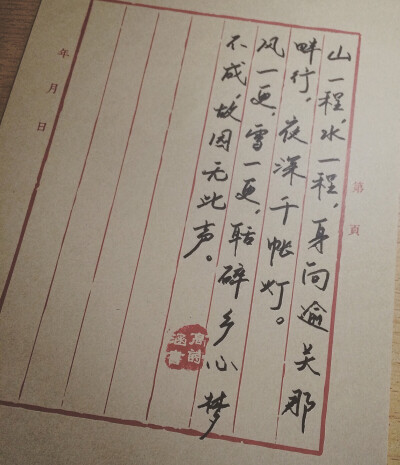 第 頁
山一程，水一程，身向逾关那
畔行，夜深千帐灯。
风一更，雪一更，聒碎乡心梦
不成，故园无此声。
高詩
涵書
年 月 日